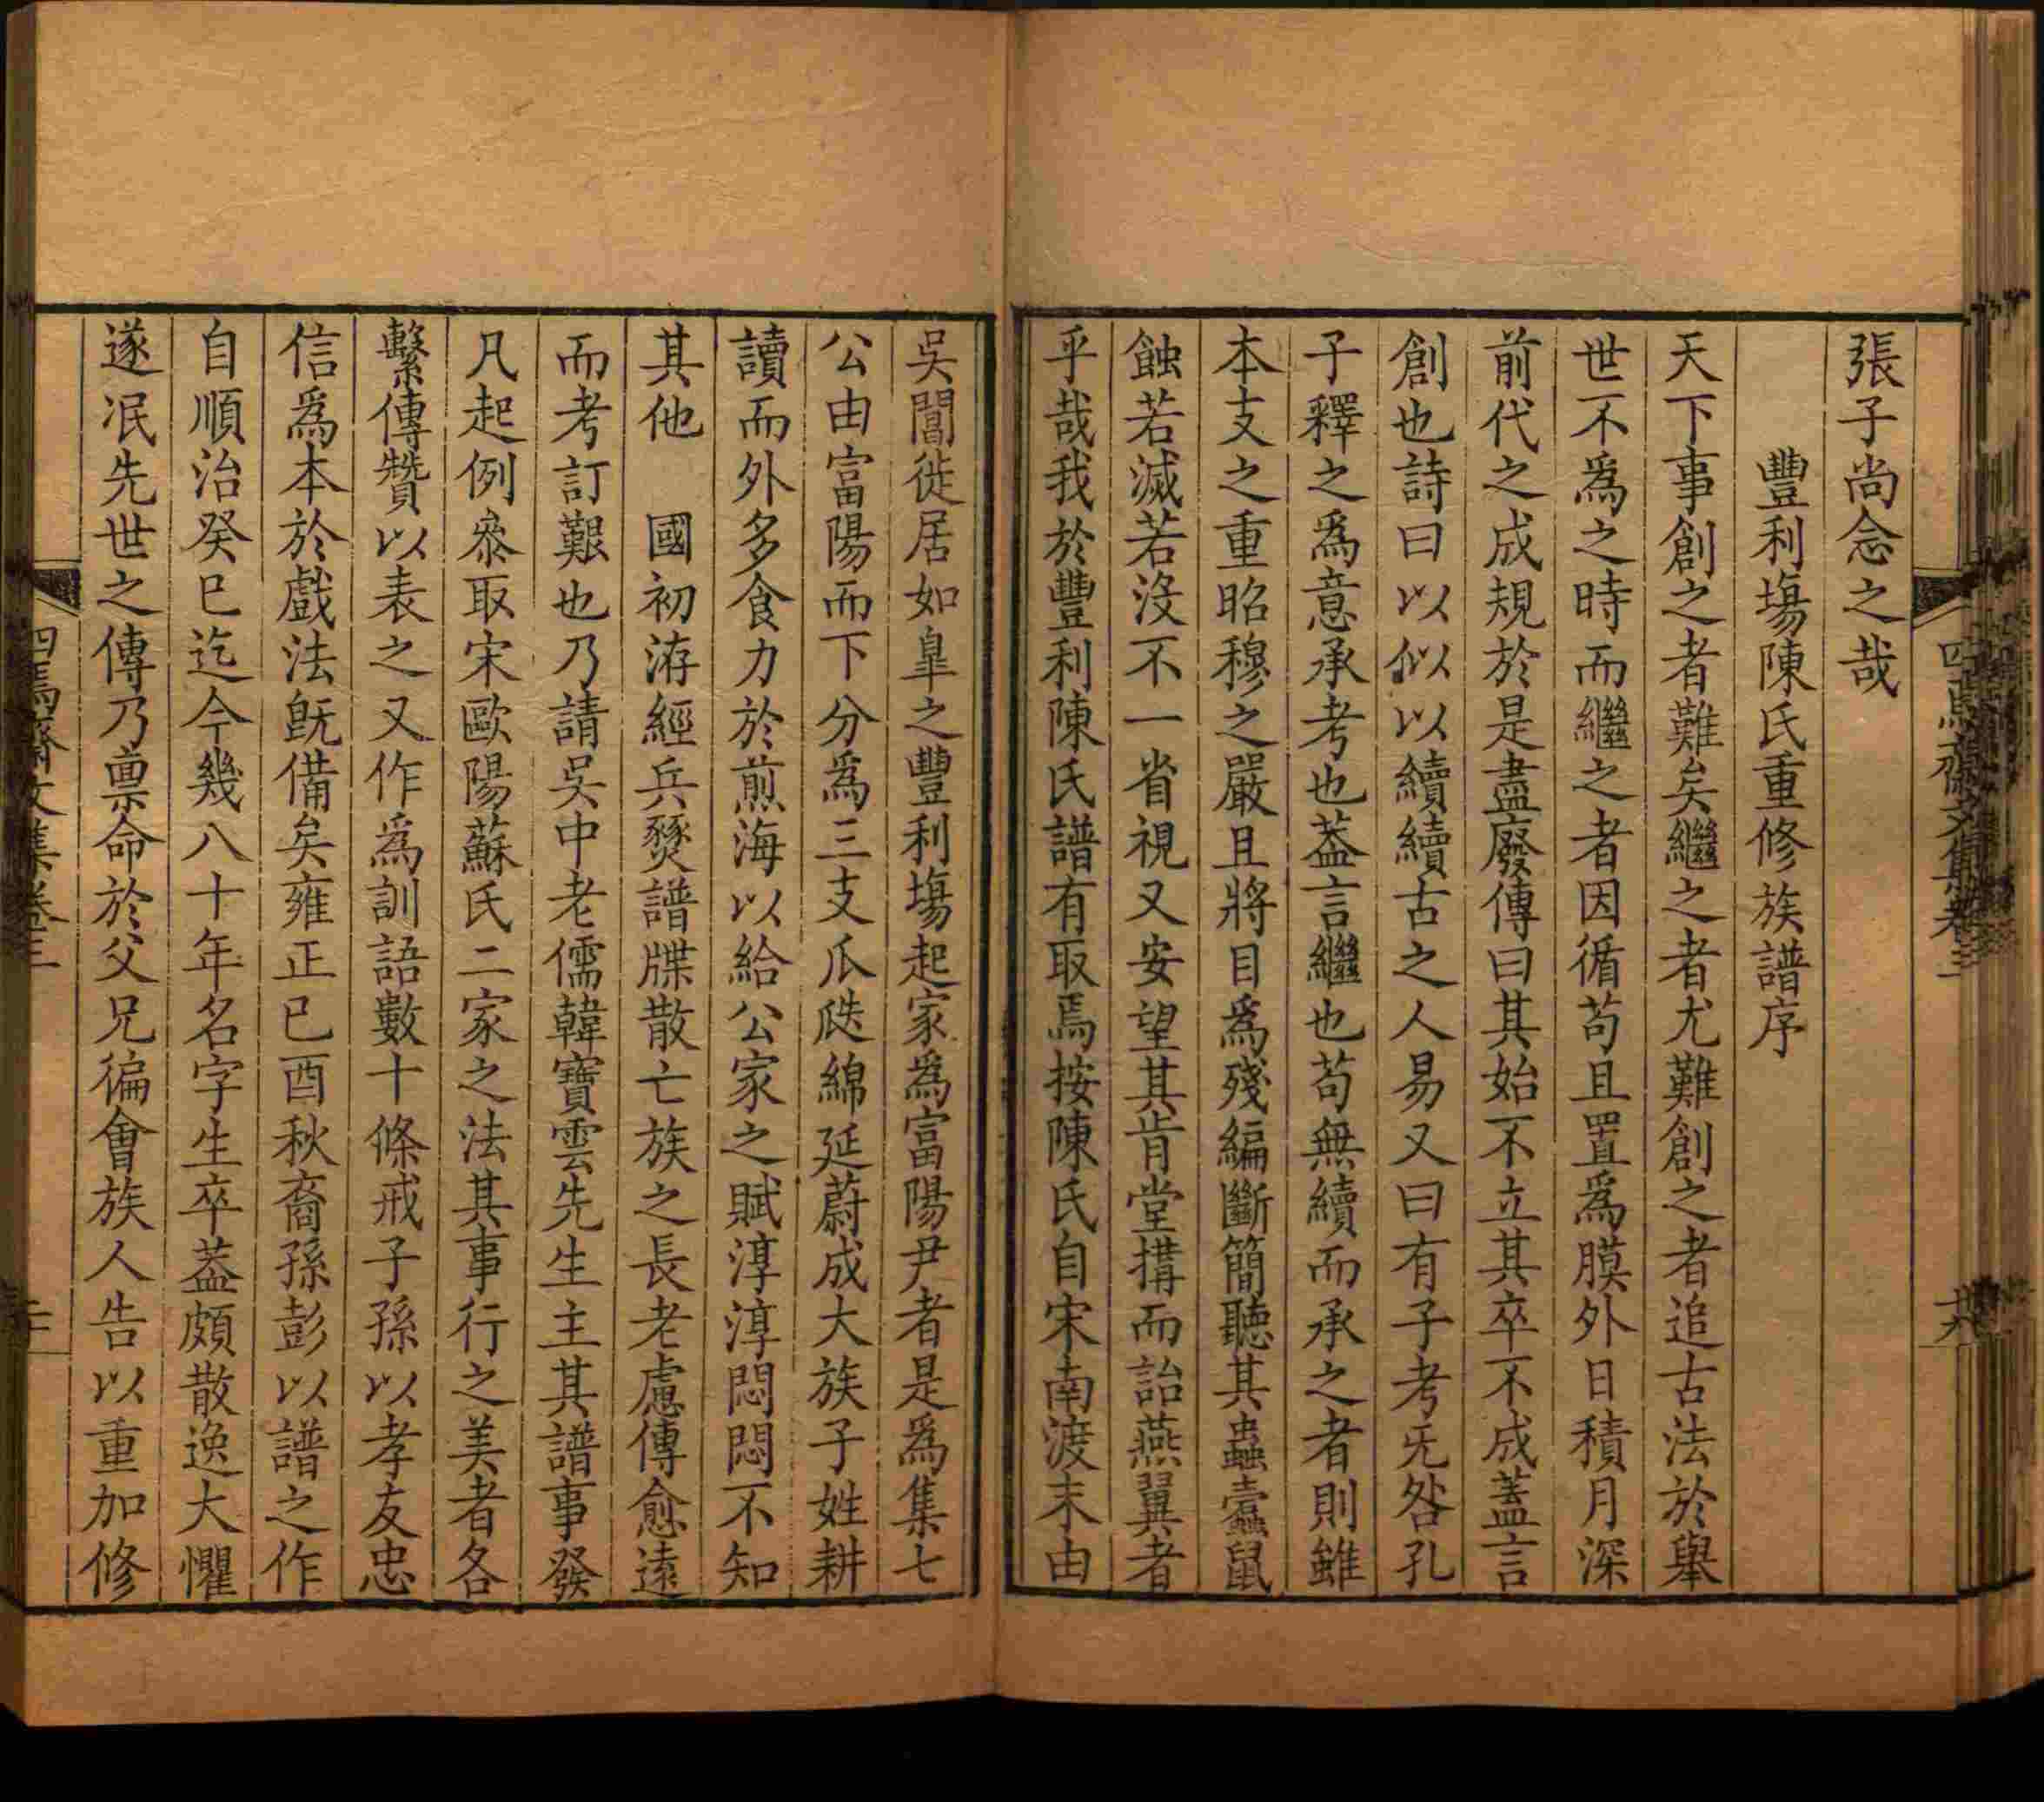 張子尚念之哉
豐利場陳氏重修族譜序
天下事創之者難矣繼之者尤難創之者追古法於舉
世不爲之時而繼之者因循苟且置爲膜外日積月深
前代之成規於是盡廢傳曰其始不立其卒不成蓋言
創也詩曰以似以續續古之人易又曰有子考旡咎孔
子釋之爲意承考也葢言繼也苟無續而承之者則雖
本支之重昭穆之嚴且將目爲殘編斷簡聽其蟲蠧鼠
蝕若滅若沒不一省視又安望其肯堂搆而詒燕翼者
乎哉我於豐利陳氏譜有取焉按陳氏自宋南渡末由
吳閶徙居如臯之豐利塲起家爲富陽尹者是爲集七
公由富陽而下分爲三支瓜瓞綿延蔚成大族子姓耕
讀而外多食力於煎海以給公家之賦淳淳悶悶不知
其他　國初洊經兵燹譜牒散亡族之長老慮傳愈遠
而考訂艱也乃請吳中老儒韓寶雲先生主其譜事發
凡起例叅取宋歐陽蘇氏二家之法其事行之美者各
繫傳贊以表之又作爲訓語數十條戒子孫以孝友忠
信爲本於戲法旣備矣雍正己酉秋裔孫彭以譜之作
自順治癸巳迄今幾八十年名字生卒葢頗散逸大懼
遂泯先世之傳乃禀命於父兄徧會族人告以重加修
四焉齋文集卷三